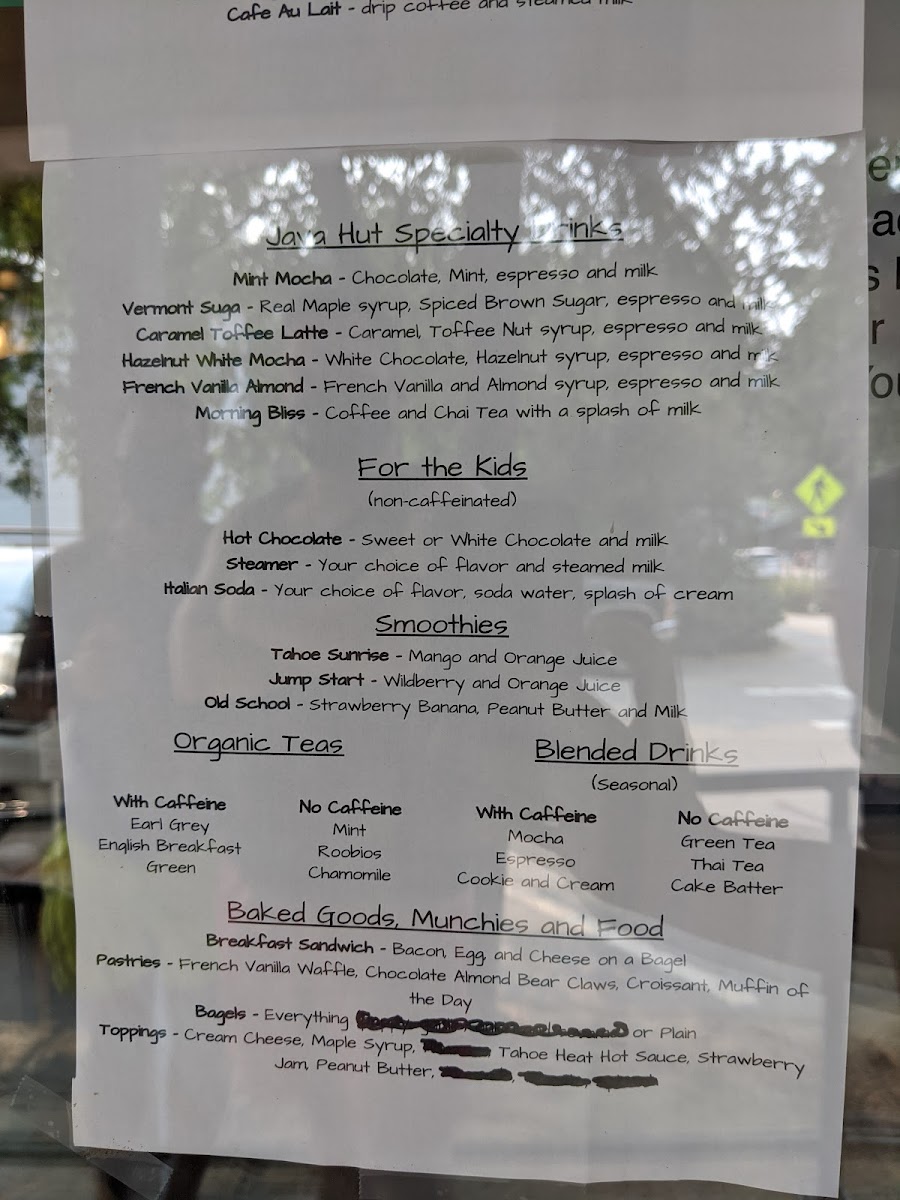 Cafe Au Lait - drip coffee and steamed milk
Java Hut Specialty Drinks
Mint Mocha - Chocolate, Mint, espresso and milk
Vermont Suga - Real Maple syrup, Spiced Brown Sugar, espresso and milk
Caramel Toffee Latte - Caramel, Toffee Nut syrup, espresso and milk
Hazelnut White Mocha - White Chocolate, Hazelnut syrup, espresso and milk
French Vanilla Almond - French Vanilla and Almond syrup, espresso and milk
Morning Bliss - Coffee and Chai Tea with a splash of milk
For the Kids
(non-caffeinated)
Hot Chocolate - Sweet or White Chocolate and milk
Steamer - Your choice of flavor and steamed milk
Italian Soda - Your choice of flavor, soda water, splash of cream
Smoothies
Tahoe Sunrise - Mango and Orange Juice
Jump Start - Wildberry and Orange Juice
Old School - Strawberry Banana, Peanut Butter and Milk
Organic Teas
With Caffeine
Earl Grey
English Breakfast
Green
No Caffeine
Mint
Roobios
Chamomile
Blended Drinks
(Seasonal)
With Caffeine
Mocha
Espresso
Cookie and Cream
No Caffeine
Green Tea
Thai Tea
Cake Batter
Baked Goods, Munchies and Food
Breakfast Sandwich - Bacon, Egg, and Cheese on a Bagel
Pastries - French Vanilla Waffle, Chocolate Almond Bear Claws, Croissant, Muffin of
the Day
Bagels - Everything or Plain
Toppings - Cream Cheese, Maple Syrup, Tahoe Heat Hot Sauce, Strawberry
Jam, Peanut Butter,